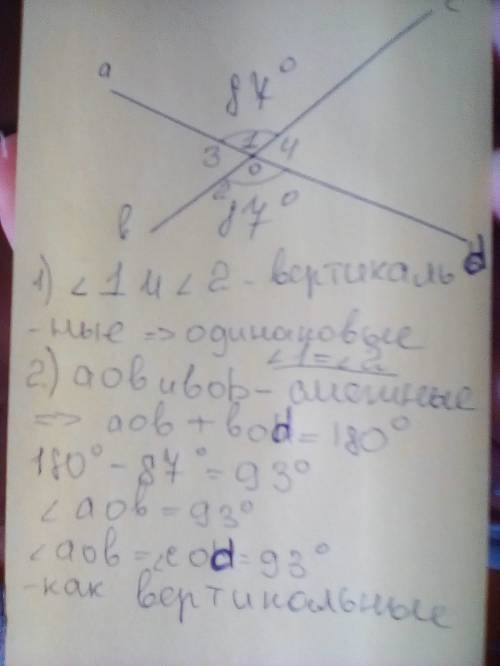 c
a
87°
3 1 4
2 o
87°
в
d
1) ∠1 и ∠2 - вертикаль
-ные => одинаковые
∠1=∠2
2) aoв и вod - смежные
=> aoв + вod = 180°
180° - 87° = 93°
∠aoв = 93°
∠aoв = ∠cod = 93°
-как вертикальные